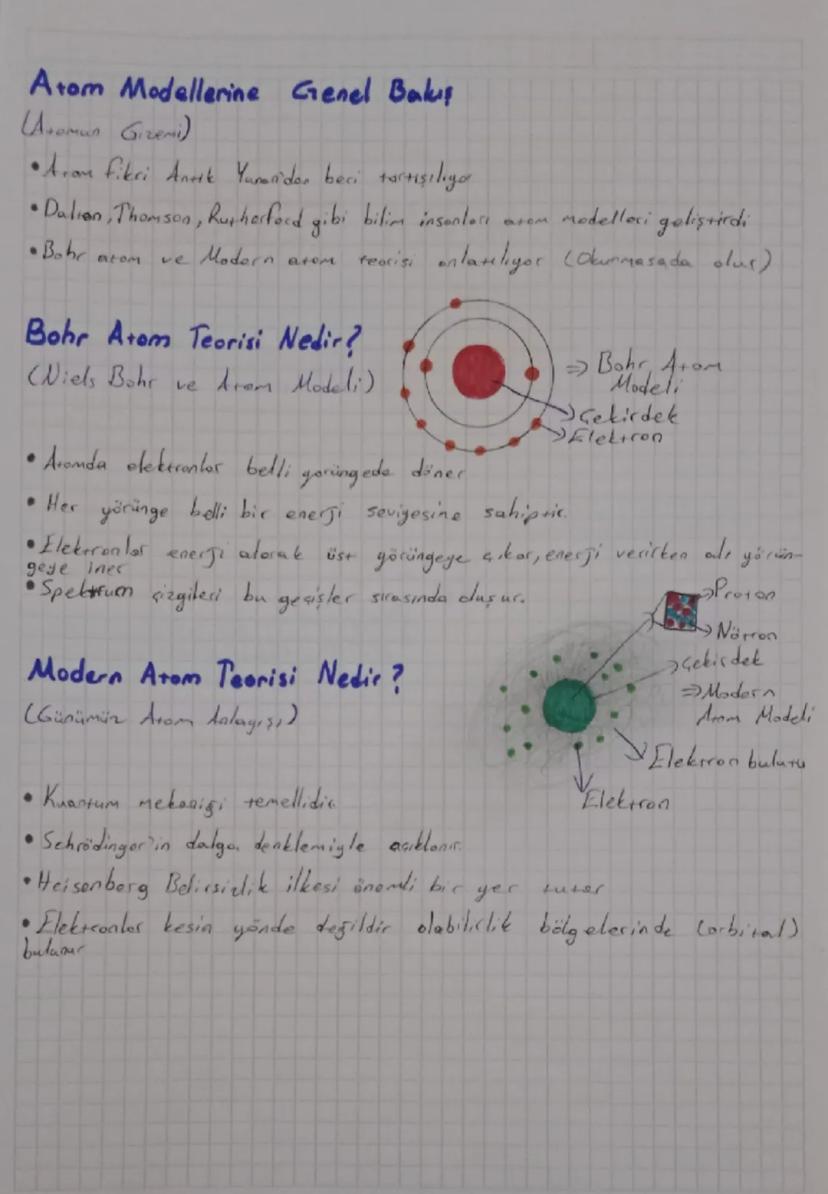 Atom Modellerine Genel Bakış
(Atomun Gizemi)
• Atom fikri Antik Yunan'dan beri tartışılıyor
• Dalton, Thomson, Rutherford gibi bilim insanları atom modelleri geliştirdi
• Bohr atom ve Modern atom teorisi anlatılıyor (Okunmasada olur)
Bohr Atom Teorisi Nedir?
(Niels Bohr ve Atom Modeli)
⇒ Bohr Atom
Modeli
Çekirdek
Elektron
• Atomda elektronlar belli yörüngede döner
• Her yörünge belli bir enerji seviyesine sahiptir.
• Elektronlar enerji alarak üst yörüngeye çıkar, enerji verirken alt yörün-
geye iner
• Spektrum çizgileri bu geçişler sırasında oluşur.
Proton
Nötron
Çekirdek
⇒ Modern
Atom Modeli
Elektron bulutu
Elektron
Modern Atom Teorisi Nedir?
(Günümüz Atom Anlayışı)
• Kuantum mekaniği temellidir
• Schrödinger'in dalga denklemiyle açıklanır.
• Heisenberg Belirsizlik ilkesi önemli bir yer tutar
• Elektronlar kesin yönde değildir olabilirlik bölgelerinde (orbital)
bulunur